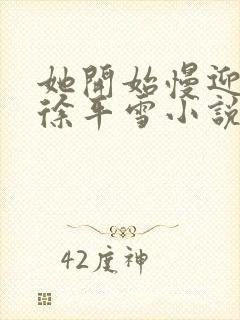 她開始慢迎
徐年雪小說
42度神